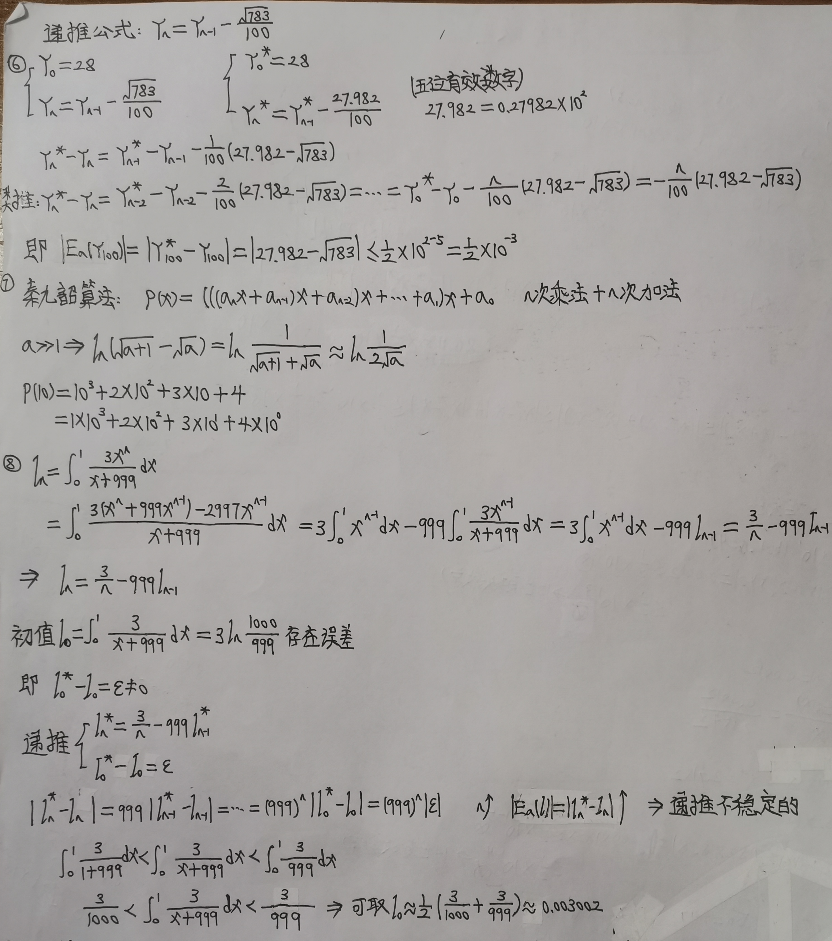 递推公式: Yₙ = Yₙ₋₁ - √783/100
⑥ { Y₀ = 28    { Y₀* = 28
Yₙ = Yₙ₋₁ - √783/100    Yₙ* = Yₙ₋₁* - 27.982/100    (五位有效数字)
27.982 = 0.27982×10²
Yₙ* - Yₙ = Yₙ₋₁* - Yₙ₋₁ - 1/100(27.982 - √783)
类推: Yₙ* - Yₙ = Yₙ₋₂* - Yₙ₋₂ - 2/100(27.982 - √783) = ... = Y₀* - Y₀ - n/100(27.982 - √783) = -n/100(27.982 - √783)
即 |Ea(Y₁₀₀)| = |Y₁₀₀* - Y₁₀₀| = |27.982 - √783| ≤ 1/2×10²⁻⁵ = 1/2×10⁻³
⑦ 秦九韶算法: P(x) = (((aₙx + aₙ₋₁)x + aₙ₋₂)x + ... + a₁)x + a₀    n次乘法+n次加法
a≫1 ⇒ ln(√a+1 - √a) = ln 1/(√a+1 + √a) ≈ ln 1/(2√a)
P(10) = 10³ + 2×10² + 3×10 + 4
= 1×10³ + 2×10² + 3×10¹ + 4×10⁰
⑧ Iₙ = ∫₀¹ 3xⁿ/(x+999) dx
= ∫₀¹ (3(xⁿ + 999xⁿ⁻¹) - 2997xⁿ⁻¹)/(x+999) dx = 3∫₀¹ xⁿ⁻¹dx - 999∫₀¹ 3xⁿ⁻¹/(x+999) dx = 3∫₀¹ xⁿ⁻¹dx - 999Iₙ₋₁ = 3/n - 999Iₙ₋₁
⇒ Iₙ = 3/n - 999Iₙ₋₁
初值 I₀ = ∫₀¹ 3/(x+999) dx = 3ln 1000/999 存在误差
即 I₀* - I₀ = ε ≠ 0
递推 { Iₙ* = 3/n - 999Iₙ₋₁*
I₀* - I₀ = ε
|Iₙ* - Iₙ| = 999|Iₙ₋₁* - Iₙ₋₁| = ... = (999)ⁿ|I₀* - I₀| = (999)ⁿ|ε|    n↑ |Ea(Iₙ)| = |Iₙ* - Iₙ|↑ ⇒ 递推不稳定的
∫₀¹ 3/(1+999) dx < ∫₀¹ 3/(x+999) dx < ∫₀¹ 3/999 dx
3/1000 < ∫₀¹ 3/(x+999) dx < 3/999 ⇒ 可取 I₀ ≈ 1/2(3/1000 + 3/999) ≈ 0.003002